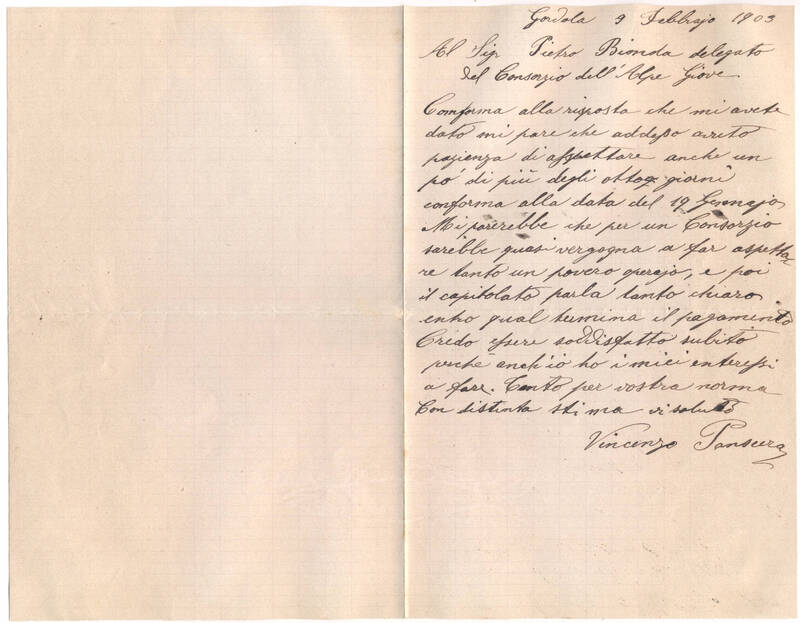 Gordola 9 Febbrajo 1903
Al Sigr Pietro Bionda delegato
del Consorzio dell'Alpe Giove
Comforma alla risposta che mi avete
dato mi pare che addesso avuto
pazienza di aspettare anche un
pó di più degli otto giorni
conforma alla data del 19 Gennajo
Mi parerebbe che per un Consorzio
sarebbe quasi vergogna a far aspetta
re tanto un povero operajo, e poi
il capitolato parla tanto chiaro
entro qual termina il pagamento
Credo essere soddisfatto subito
perchè anch'io ho i miei enteressi
a fare. Tanto per vostra norma
Con distinta stima vi saluto
Vincenzo Panscera